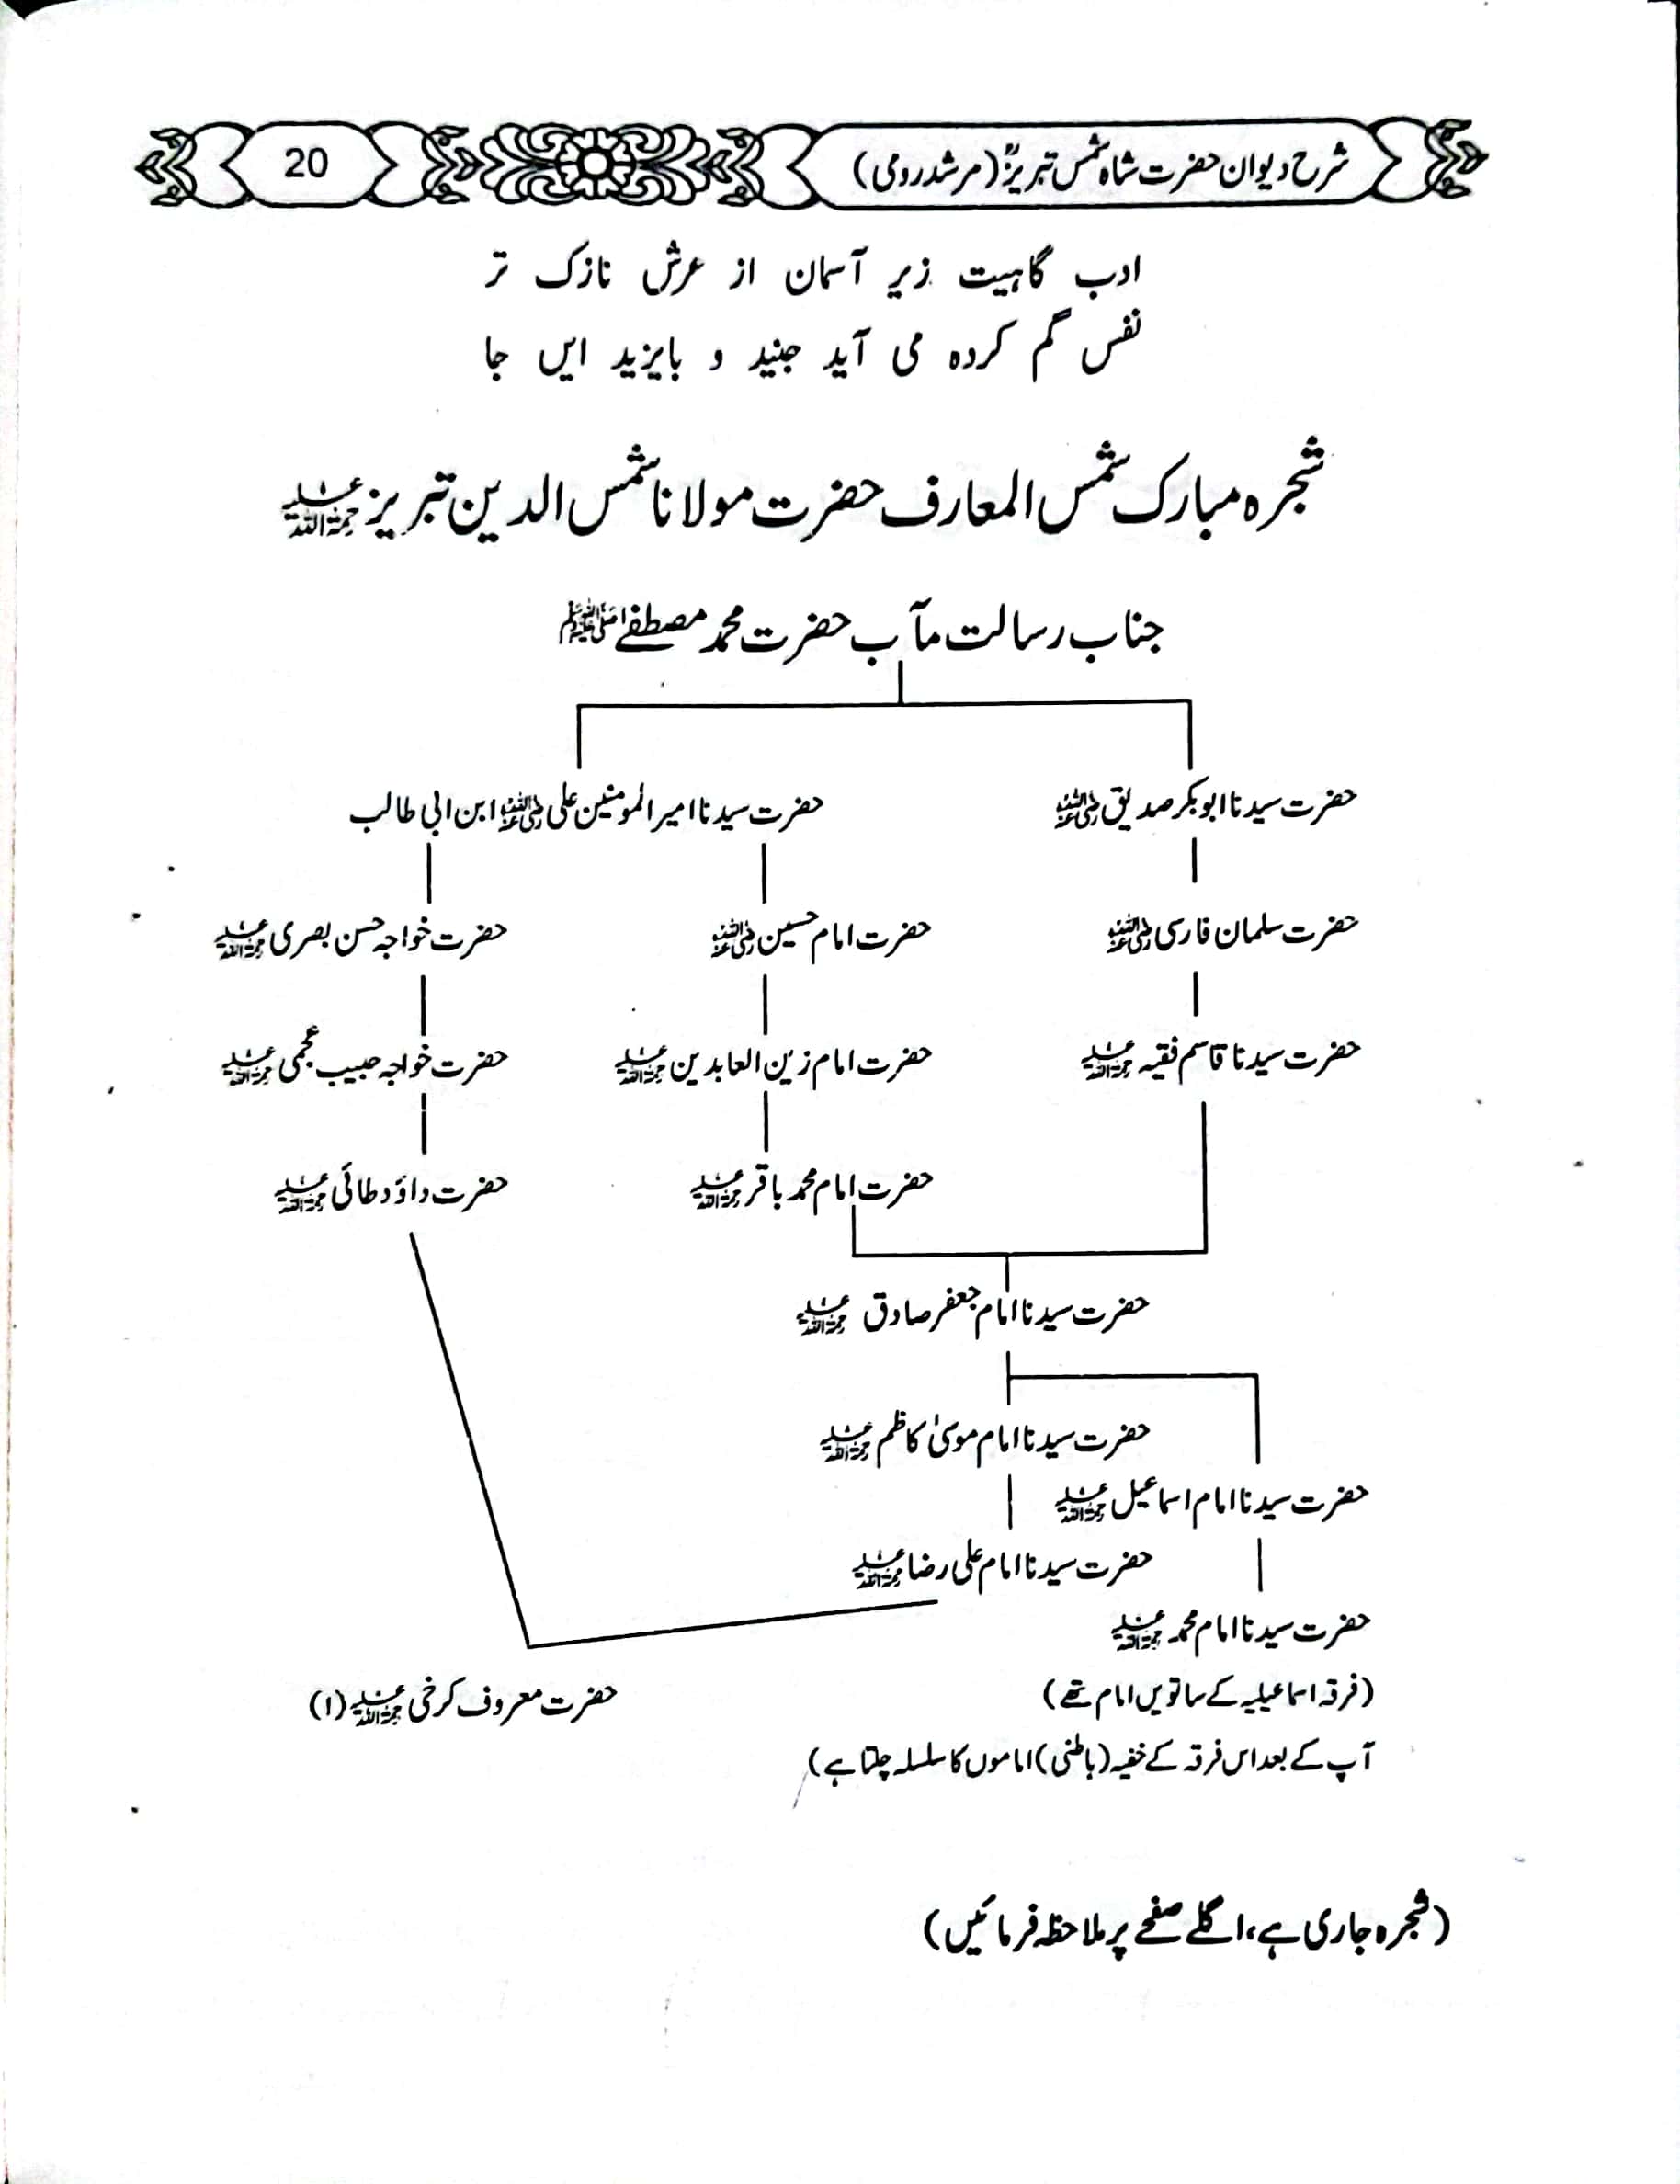 شرح دیوان حضرت شاہ شمس تبریزؒ (مرشد رومی)
20
ادب گاہیت زیر آسمان از عرش نازک تر
نفس گم کردہ می آید جنید و بایزید ایں جا
شجرہ مبارک شمس المعارف حضرت مولانا شمس الدین تبریز رحمۃ اللہ علیہ
جناب رسالت مآب حضرت محمد مصطفےٰ ﷺ
حضرت سیدنا ابو بکر صدیق رضی اللہ عنہ
حضرت سیدنا امیر المومنین علی رضی اللہ عنہ ابن ابی طالب
حضرت سلمان فارسی رضی اللہ عنہ
حضرت امام حسین رضی اللہ عنہ
حضرت خواجہ حسن بصری رحمۃ اللہ علیہ
حضرت سیدنا قاسم فقیہ رحمۃ اللہ علیہ
حضرت امام زین العابدین رحمۃ اللہ علیہ
حضرت خواجہ حبیب عجمی رحمۃ اللہ علیہ
حضرت امام محمد باقر رحمۃ اللہ علیہ
حضرت داؤد طائی رحمۃ اللہ علیہ
حضرت سیدنا امام جعفر صادق رحمۃ اللہ علیہ
حضرت سیدنا امام موسیٰ کاظم رحمۃ اللہ علیہ
حضرت سیدنا امام اسماعیل رحمۃ اللہ علیہ
حضرت سیدنا امام علی رضا رحمۃ اللہ علیہ
حضرت سیدنا امام محمد رحمۃ اللہ علیہ
(فرقہ اسماعیلیہ کے ساتویں امام تھے)
حضرت معروف کرخی رحمۃ اللہ علیہ (۱)
آپ کے بعد اس فرقہ کے خفیہ (باطنی) اماموں کا سلسلہ چلتا ہے)
(شجرہ جاری ہے، اگلے صفحے پر ملاحظہ فرمائیں)